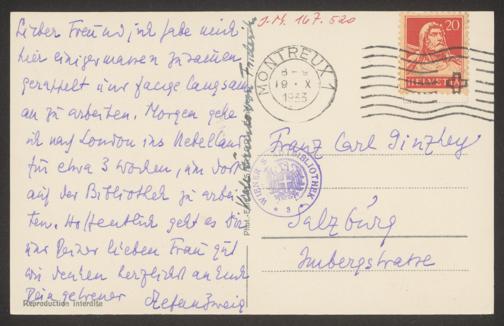 Lieber Freund, ich habe mich
hier einigermassen zusammen
gerappelt und fange langsam
an zu arbeiten. Morgen gehe
ich nach London ins Nebelland
für etwa 3 Wochen, um dort
auf der Bibliothek zu arbei-
ten. Hoffentlich geht es Dir
und Deiner lieben Frau gut
wir denken herzlichst an Euch
Dein getreuer Stefan Zweig
Reproduction interdite
J.N. 167.520
MONTREUX 1
19. X
1933
20
HELVETIA
Franz Carl Ginzkey
WIENER STADTBIBLIOTHEK
Salzburg
Imbergstrasse